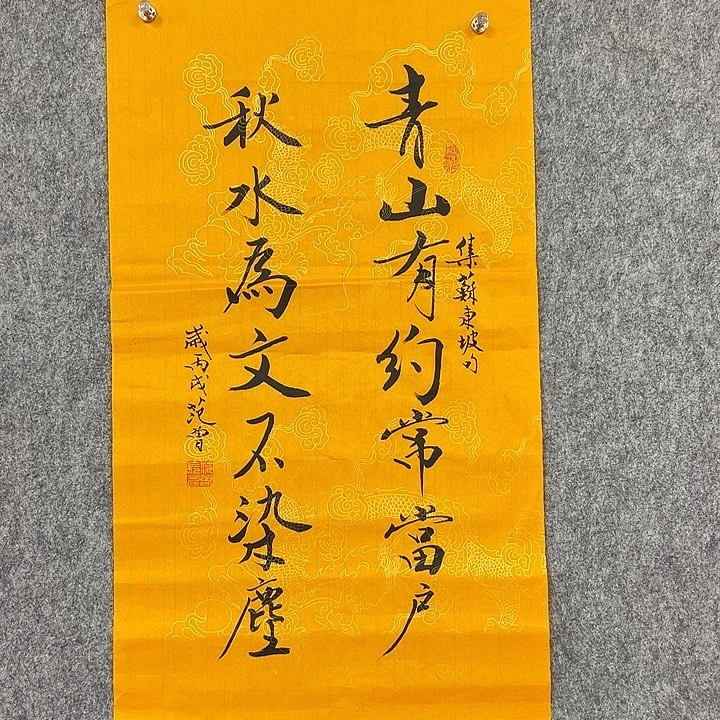 青山有約常當戶
集蘇東坡句
秋水為文不染塵
歲丙戌范曾